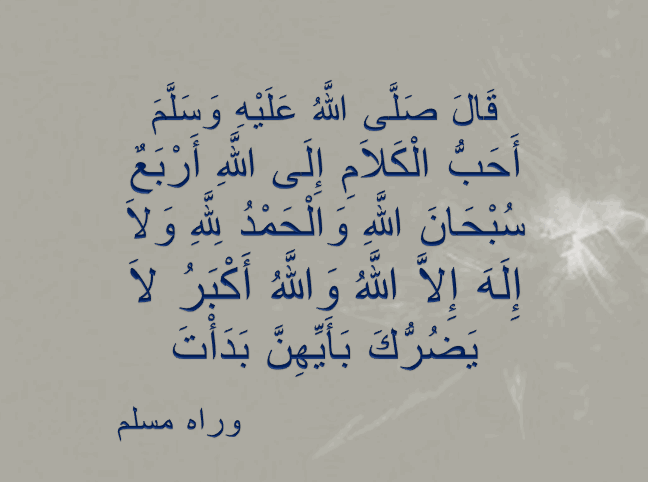 قَالَ صَلَّى اللَّهُ عَلَيْهِ وَسَلَّمَ
أَحَبُّ الْكَلاَمِ إِلَى اللَّهِ أَرْبَعٌ
سُبْحَانَ اللَّهِ وَالْحَمْدُ لِلَّهِ وَلاَ
إِلَهَ إِلاَّ اللَّهُ وَاللَّهُ أَكْبَرُ لاَ
يَضُرُّكَ بَأَيِّهِنَّ بَدَأْتَ
وراه مسلم